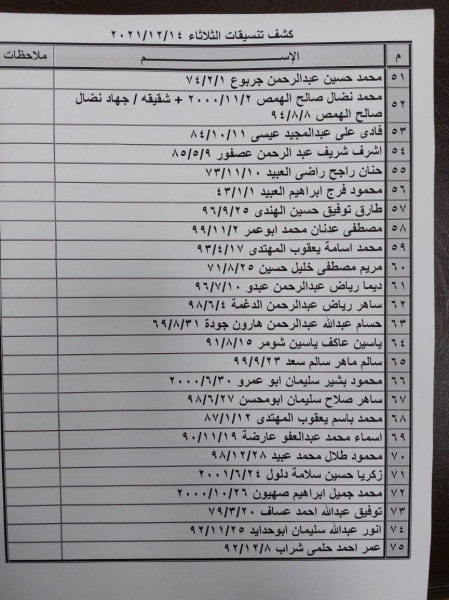 كشف تنسيقات الثلاثاء ٢٠٢١/١٢/١٤
م الإســـــم ملاحظات
٥١ محمد حسين عبدالرحمن جربوع ٧٤/٢/١
٥٢ محمد نضال صالح الهمص ٢٠٠٠/١١/٢ + شقيقه / جهاد نضال
صالح الهمص ٩٤/٨/٨
٥٣ فادى على عبدالمجيد عيسى ٨٤/١٠/١١
٥٤ اشرف شريف عبد الرحمن عصفور ٨٥/٥/٩
٥٥ حنان راجح راضى العبيد ٧٣/١١/١٠
٥٦ محمود فرج ابراهيم العبيد ٤٣/١/١
٥٧ طارق توفيق حسين الهندى ٩٦/٩/٢٥
٥٨ مصطفى عدنان محمد ابوعمر ٩٩/١١/٢
٥٩ محمد اسامة يعقوب المهتدى ٩٣/٤/١٧
٦٠ مريم مصطفى خليل حسين ٧١/٨/٢٥
٦١ ديما رياض عبدالرحمن عبدو ٩٦/٧/١٠
٦٢ ساهر رياض عبدالرحمن الدغمة ٩٨/٦/٤
٦٣ حسام عبدالله عبدالرحمن هارون جودة ٦٩/٨/٣١
٦٤ ياسين عاكف ياسين شومر ٩١/٨/١٥
٦٥ سالم ماهر سالم سعد ٩٩/٩/٢٣
٦٦ محمود بشير سليمان ابو عمرو ٢٠٠٠/٦/٣٠
٦٧ ساهر صلاح سليمان ابومحسن ٩٨/٦/٢٧
٦٨ محمد باسم يعقوب المهتدى ٨٧/١/١٢
٦٩ اسماء محمد عبدالعفو عارضة ٩٠/١١/١٩
٧٠ محمود طلال محمد عبيد ٩٨/١٢/٢٨
٧١ زكريا حسين سلامة دلول ٢٠٠١/٦/٢٤
٧٢ محمد جميل ابراهيم صهيون ٢٠٠٠/١٠/٢٦
٧٣ توفيق عبدالله احمد عساف ٧٩/٣/٢٠
٧٤ انور عبدالله سليمان ابوحدايد ٩٢/١١/٢٥
٧٥ عمر احمد حلمى شراب ٩٢/١٢/٨